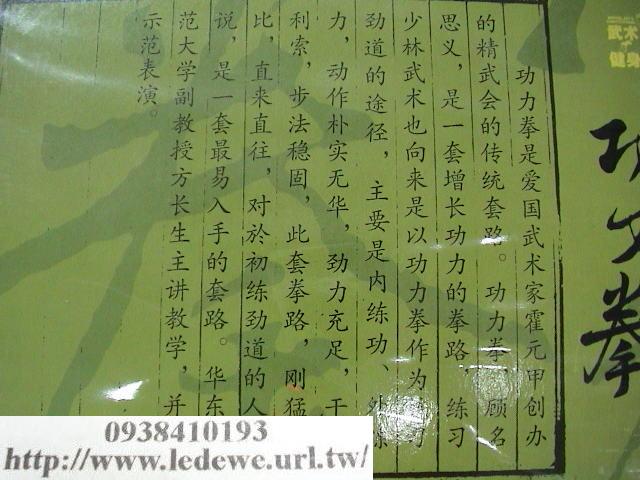 功力拳是爱国武术家霍元甲创办
的精武会的传统套路。功力拳，顾名
思义，是一套增长功力的拳路，练习
少林武术也向来是以功力拳作为练习
劲道的途径，主要是内练功、外练
力，动作朴实无华，劲力充足，干
利索，步法稳固，此套拳路，刚猛
比，直来直往，对於初练劲道的人
说，是一套最易入手的套路。华东
范大学副教授方长生主讲教学，并
示范表演。
武术
健身
功力拳
0938410193
http://www.ledewe.url.tw/